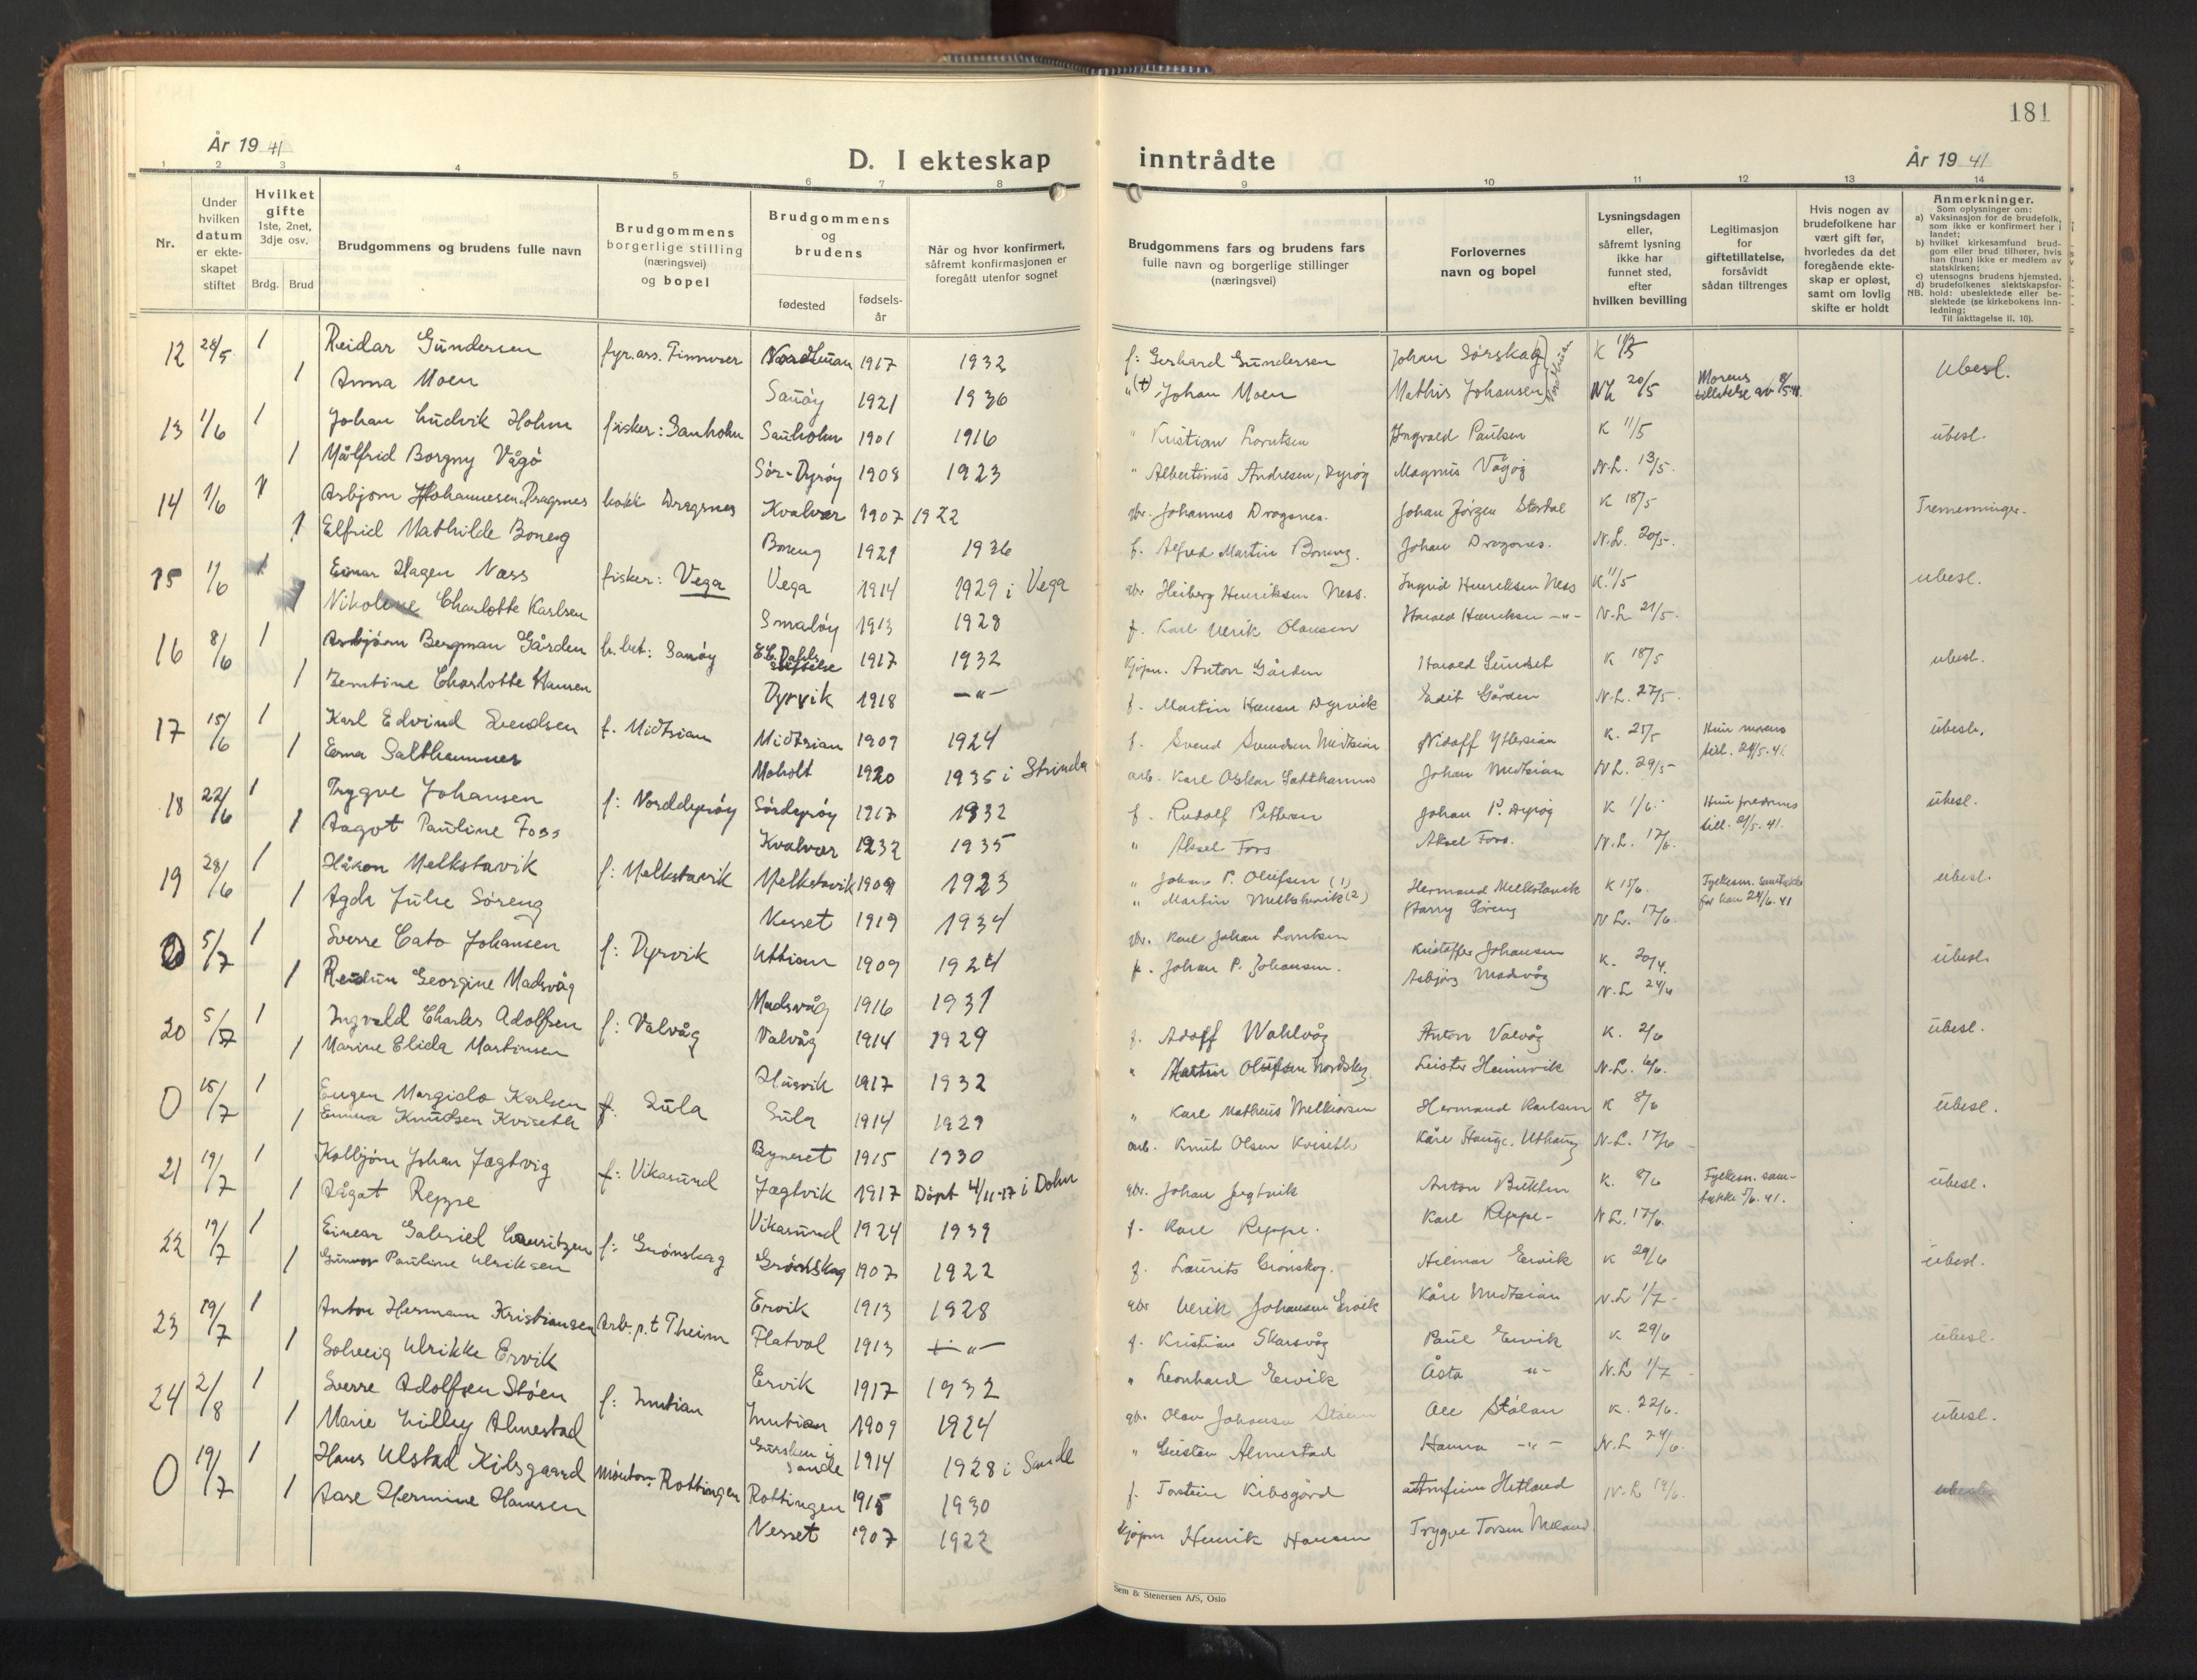 181
År 19 41
D. I ekteskap inntrådte
År 19 41
1 2 3 4 5 6 7 8 9 10 11 12 13 14
Nr.
Under hvilken datum er ekteskapet stiftet
Hvilket gifte 1ste, 2net, 3dje osv.
Brdg. Brud
Brudgommens og brudens fulle navn
Brudgommens borgerlige stilling (næringsvei) og bopel
Brudgommens og brudens
fødested
fødselsår
Når og hvor konfirmert, såfremt konfirmasjonen er foregått utenfor sognet
Brudgommens fars og brudens fars fulle navn og borgerlige stillinger (næringsvei)
Forlovernes navn og bopel
Lysningsdagen eller, såfremt lysning ikke har funnet sted, efter hvilken bevilling
Legitimasjon for giftetillatelse, forsåvidt sådan tiltrenges
Hvis nogen av brudefolkene har vært gift før, hvorledes da det foregående ekteskap er opløst, samt om lovlig skifte er holdt
Anmerkninger.
Som oplysninger om:
a) Vaksinasjon for de brudefolk, som ikke er konfirmert her i landet;
b) hvilket kirkesamfund brudgom eller brud tilhører, hvis han (hun) ikke er medlem av statskirken;
c) utensogns brudens hjemsted.
d) brudefolkenes slektskapsforhold: ubeslektede eller beslektede (se kirkebokens innledning;
NB. Til iakttagelse II. 10).
12 28/5 1 Reidar Gundersen fyr.ass. Finnvær 1917 1932 f: Gerhard Gundersen Johan Sørskag K 11/5 Ubesl.
1 Anna Moen Sauøy 1921 1936 " (+) Johan Moen Mathis Johansen NL 20/5 Morens tillatelse av 8/5-41.
13 1/6 1 Johan Ludvik Holm fisker: Sauholm Sauholm 1901 1916 " Kristian Lorntsen Ingvald Paulsen K 11/5 übesl.
1 Målfrid Borgny Vågø Sør-Dyrøy 1908 1923 " Albertinus Andresen, Dyrøy Magnus Vågøy N.L. 13/5.
14 1/6 1 Asbjørn Johannesen Dragsnes kokk Dragsnes Kvalvær 1907 1922 gbr. Johannes Dragsnes. Johan Jørgen Stordal K 18/5 Tremenninger.
1 Elfrid Mathilde Boneng Boneng 1921 1936 f. Alfred Martin Boneng. Johan Dragsnes. N.L. 20/5.
15 1/6 1 Einar Hagen Næss fisker: Vega Vega 1914 1929 i Vega gbr Heiberg Henriksen Ness. Ingrid Henriksen Ness K. 11/5 ubesl.
1 Nikoline Charlotte Karlsen Smaløy 1913 1928 f. Karl Ulrik Olausen Harald Henriksen -"- N.L 21/5.
16 8/6 1 Asbjørn Bergman Gården h.bet: Sauøy E.C. Dahls stiftelse 1917 1932 kjøpm. Anton Gården Harald Sundet K 18/5 ubesl.
1 Bentine Charlotte Hansen Dyrvik 1918 -"- f. Martin Hansen Dyrvik Edit Gården N.L. 27/5.
17 15/6 1 Karl Edvind Svendsen f. Midtsian Midtsian 1909 1924 f. Svend Svendsen Midtsian Nidolf Yttersian K. 25/5 Hun morens till. 24/5.41 übesl.
1 Erna Salthammer Moholt 1920 1935 i Strinda arb. Karl Oskar Salthammer Johan Midtsian N.L. 29/5
18 22/6 1 Trygve Johansen f: Norddyrøy Sørdyrøy 1917 1932 f. Rudolf Pettersen Johan P. Dyrøy K 1/6. Hun farens till. 21/5.41. übesl.
1 Aagot Pauline Foss Kvalvær 1932 1935 " Aksel Foss Aksel Foss. N.L. 17/6.
19 28/6 1 Håkon Melkstavik f: Melkstavik Melkstavik 1909 1923 " Johan P. Olufsen (1) " Martin Melkstavik (2) Hermand Melkstavik K 15/6. Fylkesm. samtykke for han 24/6.41 ubesl.
1 Agda Julie Søreng Nesset 1919 1934 gbr. Karl Johan Lorntsen Harry Søreng N.L. 17/6.
0 5/7 1 Sverre Cato Johansen f: Dyrvik Uttian 1909 1924 f. Johan P. Johansen. Kristoffer Johansen K. 20/4. übesl.
1 Reidun Georgine Madsvåg Madsvåg 1916 1931 Asbjørg Madsvåg N.L 24/6
20 5/7 1 Ingvald Charles Adolfsen f: Valvåg Valvåg 1914 1929 f. Adolf Wahlvåg Anton Valvåg K. 2/6 übesl.
1 Marine Elida Martinsen Husvik 1917 1932 " Martin Olufsen Nordskag. Leister Heimvik N.L. 4/6.
0 15/7 1 Eugen Margido Karlsen f. Sula Sula 1914 1929 " Karl Matheus Melkiorsen Hermand Karlsen K 8/6 übesl.
1 Emma Knudsen Kviseth Byneset 1915 1930 arb. Knut Olsen Kviseth Kåre Hauge, Uthaug N.L. 17/6
21 19/7 1 Kolbjørn Johan Jægtvig f: Vikasund Jægtvik 1917 Døpt 4/11-17 i Dolm gbr. Johan Jegtvik Anton Buklen K. 8/6 Fylkesm. samtykke 5/6.41. übesl.
1 Aagot Reppe Vikasund 1924 1939 f. Karl Reppe. Karl Reppe- N.L. 17/6.
22 19/7 1 Einar Gabriel Lauritzen f: Grønskag Grønskag 1907 1922 f. Laurits Grønskog. Hilmar Ervik K 29/6 übesl.
1 Gunvor Pauline Ulriksen Ervik 1913 1928 gbr Ulrik Johansen Ervik Kåre Midtsian N.L 1/7
23 19/7 1 Anton Hermann Kristiansen Arb. p.t Theim Flatval 1913 -"- f. Kristian Skarsvåg Paul Ervik K 29/6 übesl.
1 Solveig Ulrikke Ervik Ervik 1917 1932 " Leonhard Ervik Åsta "- N.L 1/7
24 2/8 1 Sverre Adolfsen Støen f: Inntian Inntian 1909 1924 gb. Olav Johansen Støen K. 22/6. übesl.
1 Marie Lilly Almestad Gursken i Sande 1914 1928 i Sande " Gusten Almestad Hanna -"- N.L 24/6.
0 19/7 1 Hans Ulstad Kibsgaard Rottingen Rottingen 1915 1930 f. Torstein Kibsgård Hetland N.L 19/6. ubesl.
1 Aase Hermine Hansen Nesset 1907 1922 kjøpm Henrik Hansen Trygve Torsen
Sem & Stenersen A/S, Oslo